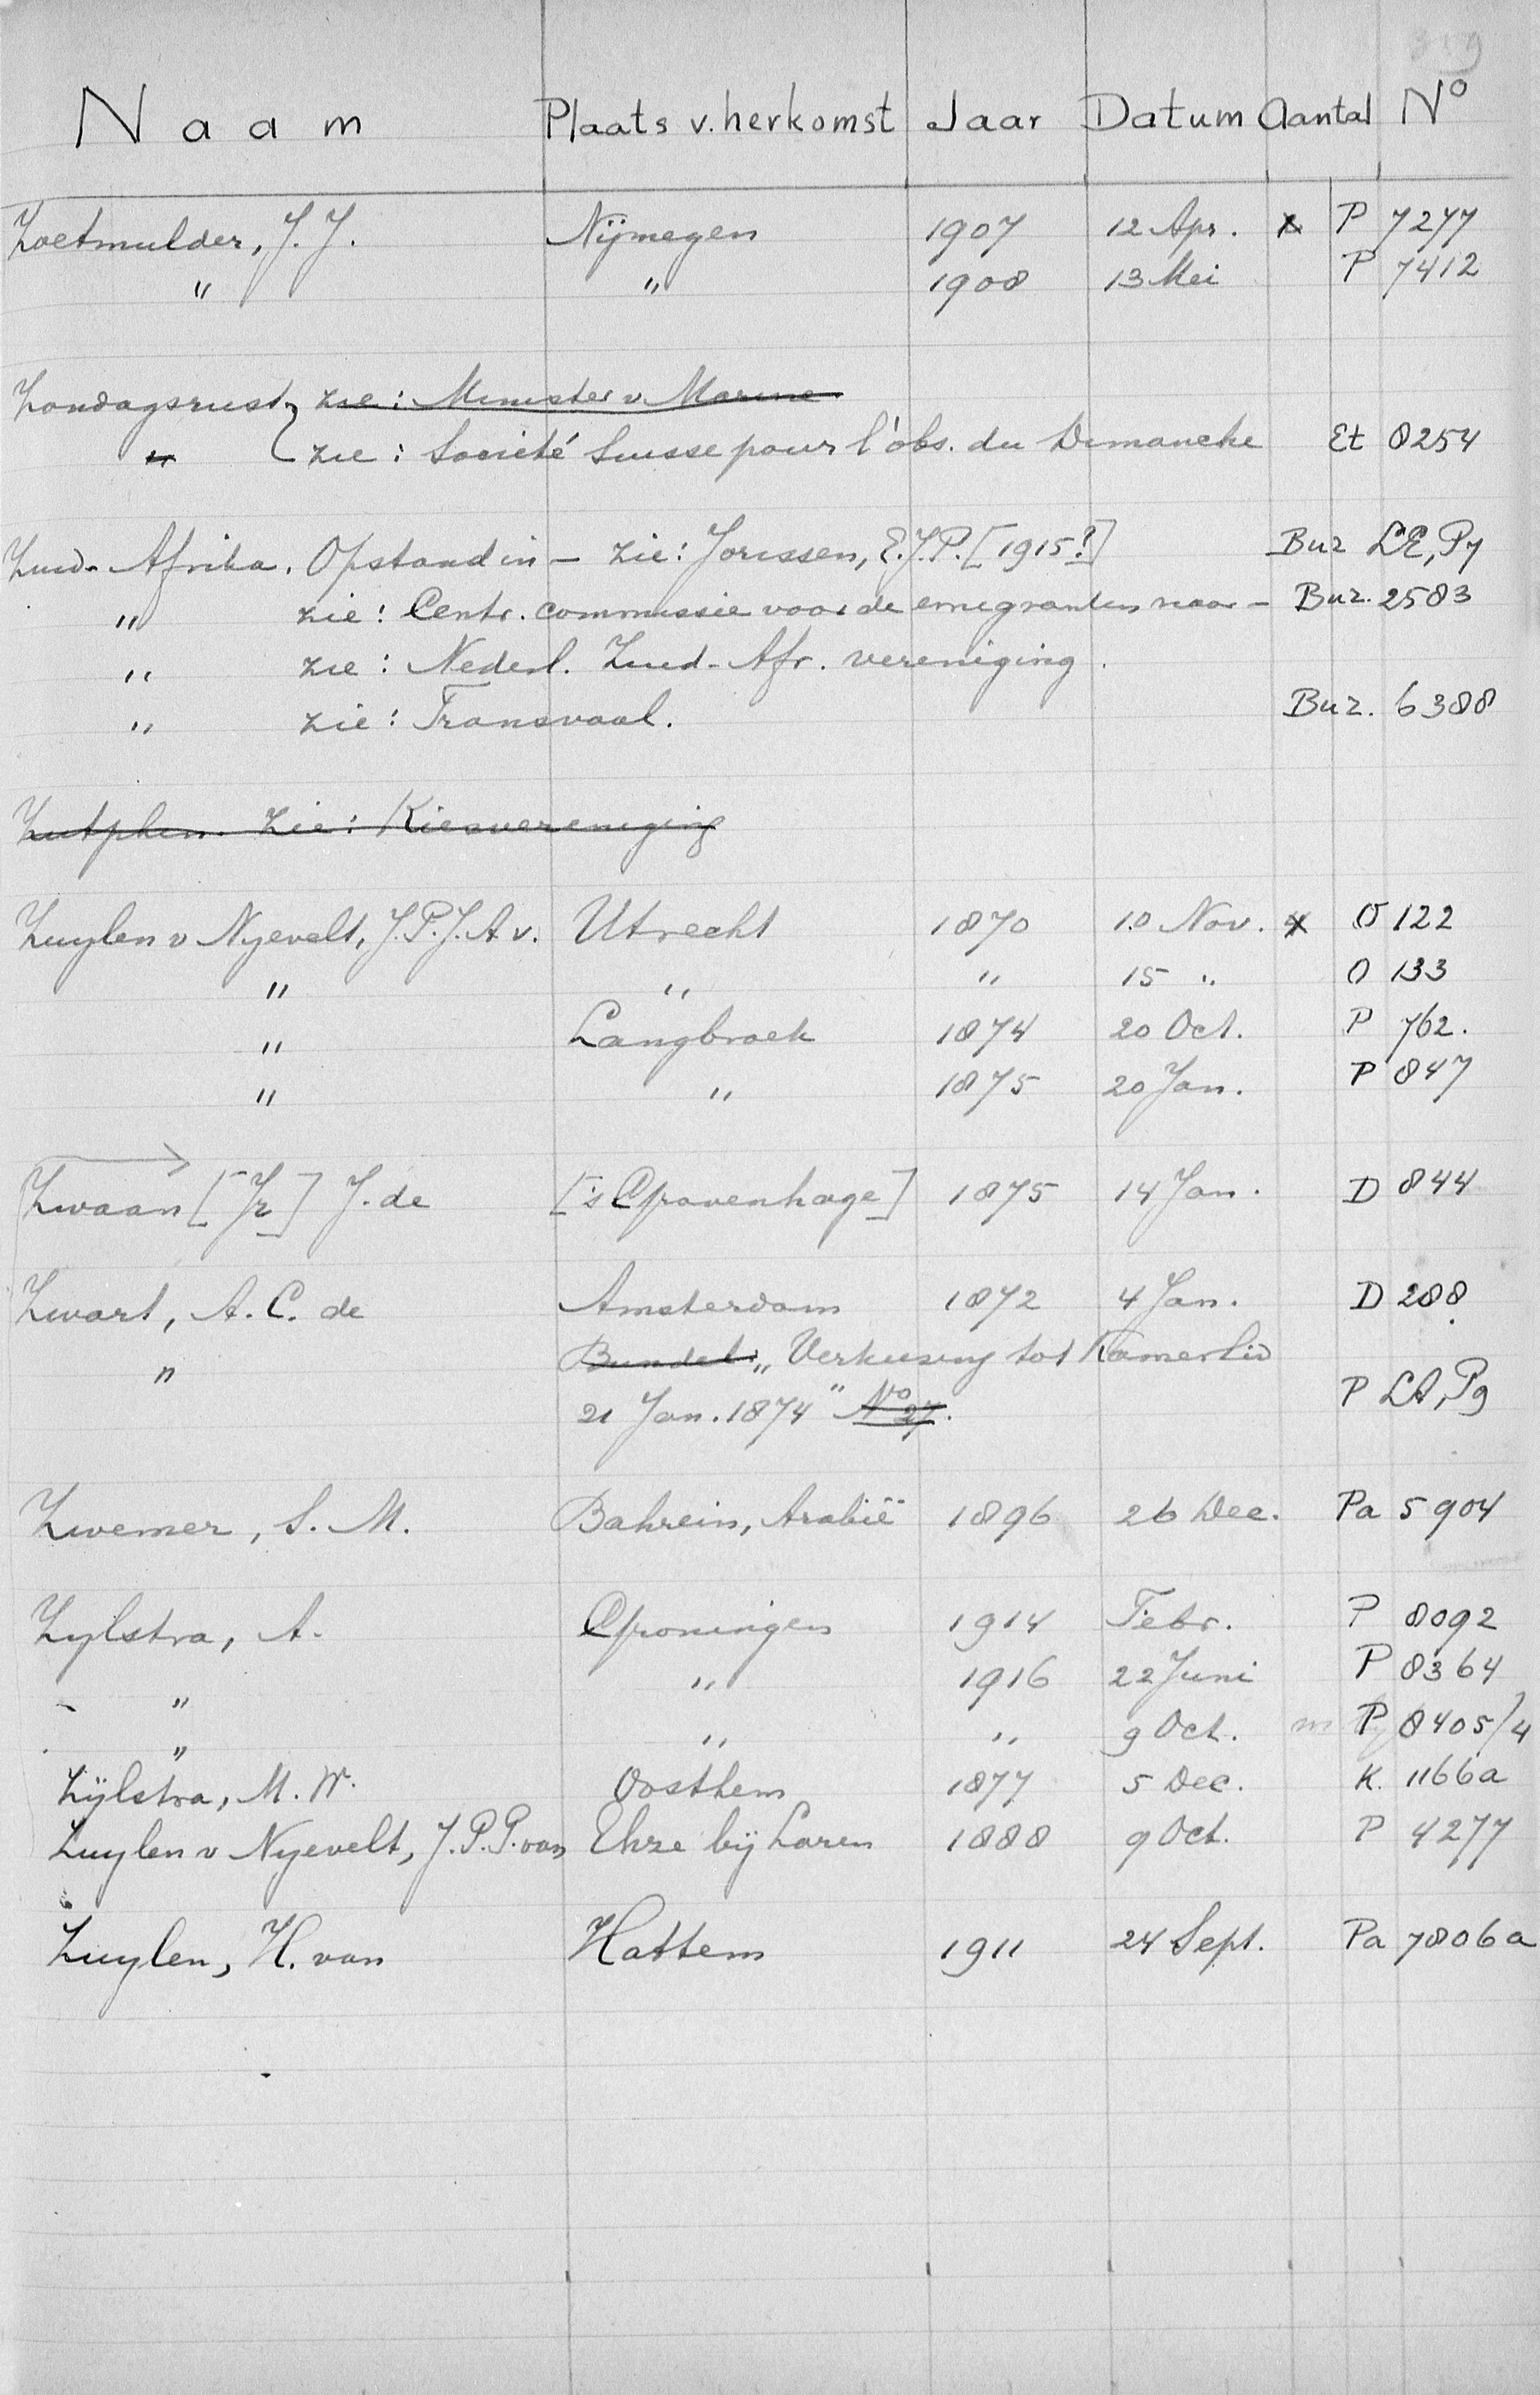 319
Naam Plaats v. herkomst Jaar Datum Aantal No
Zoetmulder, J. J. Nijmegen 1907 12 Apr. x P 7277
" " 1908 13 Mei P 7412
Zondagsrust zie: Minister v. Marine
" zie: Société Suisse pour l'obs. du Dimanche Et 8254
Zuid-Afrika. Opstand in - zie: Jorissen, E.J.P. [1915?] Buz LE, P7
" zie: Centr. commissie voor de emigranten naar - Buz. 2583
" zie: Nederl. Zuid-Afr. vereniging.
" zie: Transvaal. Buz. 6388
Zutphen. Zie: Kiesvereniging
Zuylen v Nyevelt, J.P.J.A v. Utrecht 1870 10 Nov. x O 122
" " " 15 " O 133
" Langbroek 1874 20 Oct. P 762.
" " 1875 20 Jan. P 847
Zwaan [Jr] J. de ['s Gravenhage] 1875 14 Jan. D 844
Zwart, A. C. de Amsterdam 1872 4 Jan. D 288
" Bundel: „Verkiesing tot Kamerlid
21 Jan. 1874" No 27. P LA, P9
Zwemer, S. M. Bahrein, Arabië 1896 26 Dec. Pa 5904
Zylstra, A. Groningen 1914 Febr. P 8092
" " 1916 22 Juni P 8364
" " " 9 Oct. P 8405/4
Zijlstra, M. W. Oosthem 1877 5 Dec. K. 1166a
Zuylen v Nyevelt, J. P. P. van Ehze bij Laren 1888 9 Oct. P 4277
Zuylen, H. van Hattem 1911 24 Sept. Pa 7806a